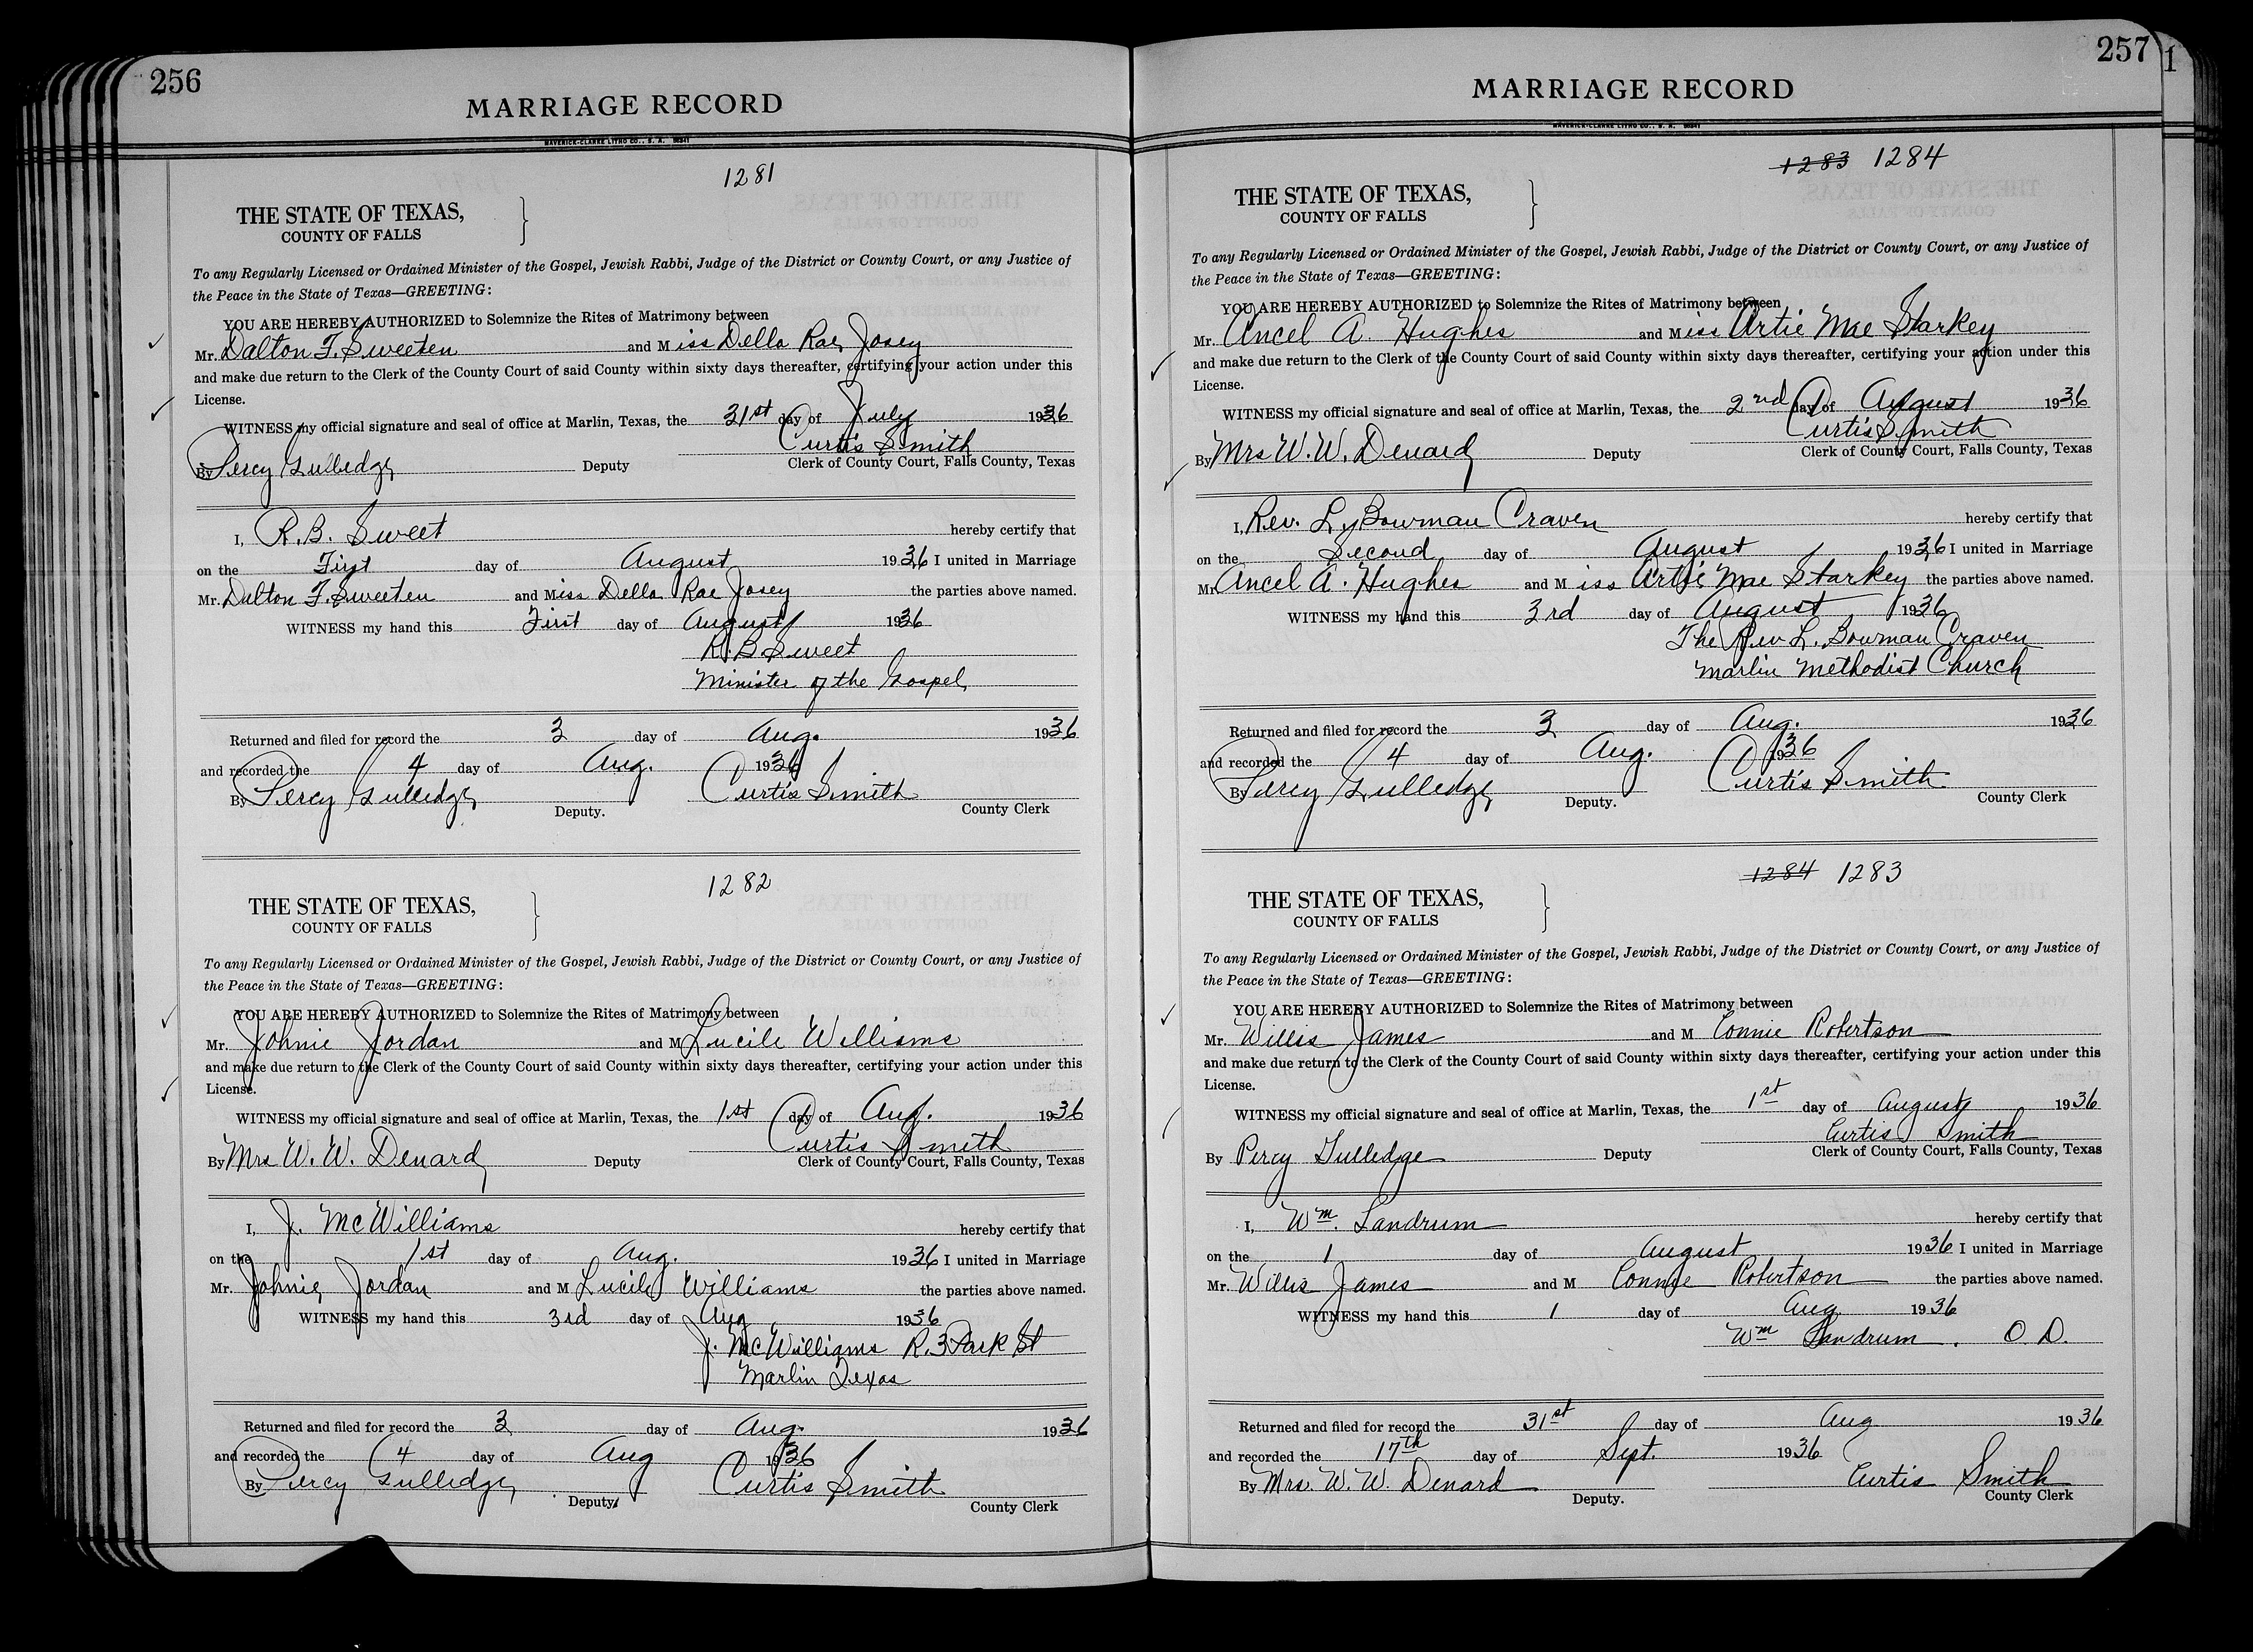 256
MARRIAGE RECORD
MAVERICK-CLARKE LITHO CO., S. A.
1281
THE STATE OF TEXAS,
COUNTY OF FALLS
To any Regularly Licensed or Ordained Minister of the Gospel, Jewish Rabbi, Judge of the District or County Court, or any Justice of
the Peace in the State of Texas—GREETING:
YOU ARE HEREBY AUTHORIZED to Solemnize the Rites of Matrimony between
Mr. Dalton F. Sweeten and Miss Della Rae Josey
and make due return to the Clerk of the County Court of said County within sixty days thereafter, certifying your action under this
License.
WITNESS my official signature and seal of office at Marlin, Texas, the 31st day of July 1936
Curtis Smith
By Percy Gulledge Deputy Clerk of County Court, Falls County, Texas
I, R.B. Sweet hereby certify that
on the First day of August 1936 I united in Marriage
Mr. Dalton F. Sweeten and Miss Della Rae Josey the parties above named.
WITNESS my hand this First day of August 1936
R.B Sweet
Minister of the Gospel
Returned and filed for record the 3 day of Aug. 1936
and recorded the 4 day of Aug. 1936
By Percy Gulledge Deputy. Curtis Smith County Clerk
1282
THE STATE OF TEXAS,
COUNTY OF FALLS
To any Regularly Licensed or Ordained Minister of the Gospel, Jewish Rabbi, Judge of the District or County Court, or any Justice of
the Peace in the State of Texas—GREETING:
YOU ARE HEREBY AUTHORIZED to Solemnize the Rites of Matrimony between
Mr. Johnie Jordan and M Lucile Williams
and make due return to the Clerk of the County Court of said County within sixty days thereafter, certifying your action under this
License.
WITNESS my official signature and seal of office at Marlin, Texas, the 1st day of Aug. 1936
Curtis Smith
By Mrs W. W. Denard Deputy Clerk of County Court, Falls County, Texas
I, J. McWilliams hereby certify that
on the 1st day of Aug. 1936 I united in Marriage
Mr. Johnie Jordan and M Lucile Williams the parties above named.
WITNESS my hand this 3rd day of Aug 1936
J. McWilliams R.3 Park St
Marlin Texas
Returned and filed for record the 3 day of Aug. 1936
and recorded the 4 day of Aug 1936
By Percy Gulledge Deputy Curtis Smith County Clerk
257
1
MARRIAGE RECORD
MAVERICK-CLARKE LITHO CO., S. A.
1283 1284
THE STATE OF TEXAS,
COUNTY OF FALLS
To any Regularly Licensed or Ordained Minister of the Gospel, Jewish Rabbi, Judge of the District or County Court, or any Justice of
the Peace in the State of Texas—GREETING:
YOU ARE HEREBY AUTHORIZED to Solemnize the Rites of Matrimony between
Mr. Ancel A. Hughes and Miss Artie Mae Starkey
and make due return to the Clerk of the County Court of said County within sixty days thereafter, certifying your action under this
License.
WITNESS my official signature and seal of office at Marlin, Texas, the 2nd day of August 1936
Curtis Smith
By Mrs W. W. Denard Deputy Clerk of County Court, Falls County, Texas
I, Rev. L. Bowman Craven hereby certify that
on the Second day of August 1936 I united in Marriage
Mr Ancel A. Hughes and Miss Artie Mae Starkey the parties above named.
WITNESS my hand this 3rd day of August 1936
The Rev L. Bowman Craven
Marlin Methodist Church
Returned and filed for record the 3 day of Aug. 1936
and recorded the 4 day of Aug. 1936
By Percy Gulledge Deputy. Curtis Smith County Clerk
1284 1283
THE STATE OF TEXAS,
COUNTY OF FALLS
To any Regularly Licensed or Ordained Minister of the Gospel, Jewish Rabbi, Judge of the District or County Court, or any Justice of
the Peace in the State of Texas—GREETING:
YOU ARE HEREBY AUTHORIZED to Solemnize the Rites of Matrimony between
Mr. Willis James and M Connie Robertson
and make due return to the Clerk of the County Court of said County within sixty days thereafter, certifying your action under this
License.
WITNESS my official signature and seal of office at Marlin, Texas, the 1st day of August 1936
Curtis Smith
By Percy Gulledge Deputy Clerk of County Court, Falls County, Texas
I, Wm. Landrum hereby certify that
on the 1 day of August 1936 I united in Marriage
Mr. Willis James and M Connie Robertson the parties above named.
WITNESS my hand this 1 day of Aug 1936
Wm Landrum. O. D.
Returned and filed for record the 31st day of Aug 1936
and recorded the 17th day of Sept. 1936
By Mrs. W. W. Denard Deputy. Curtis Smith County Clerk